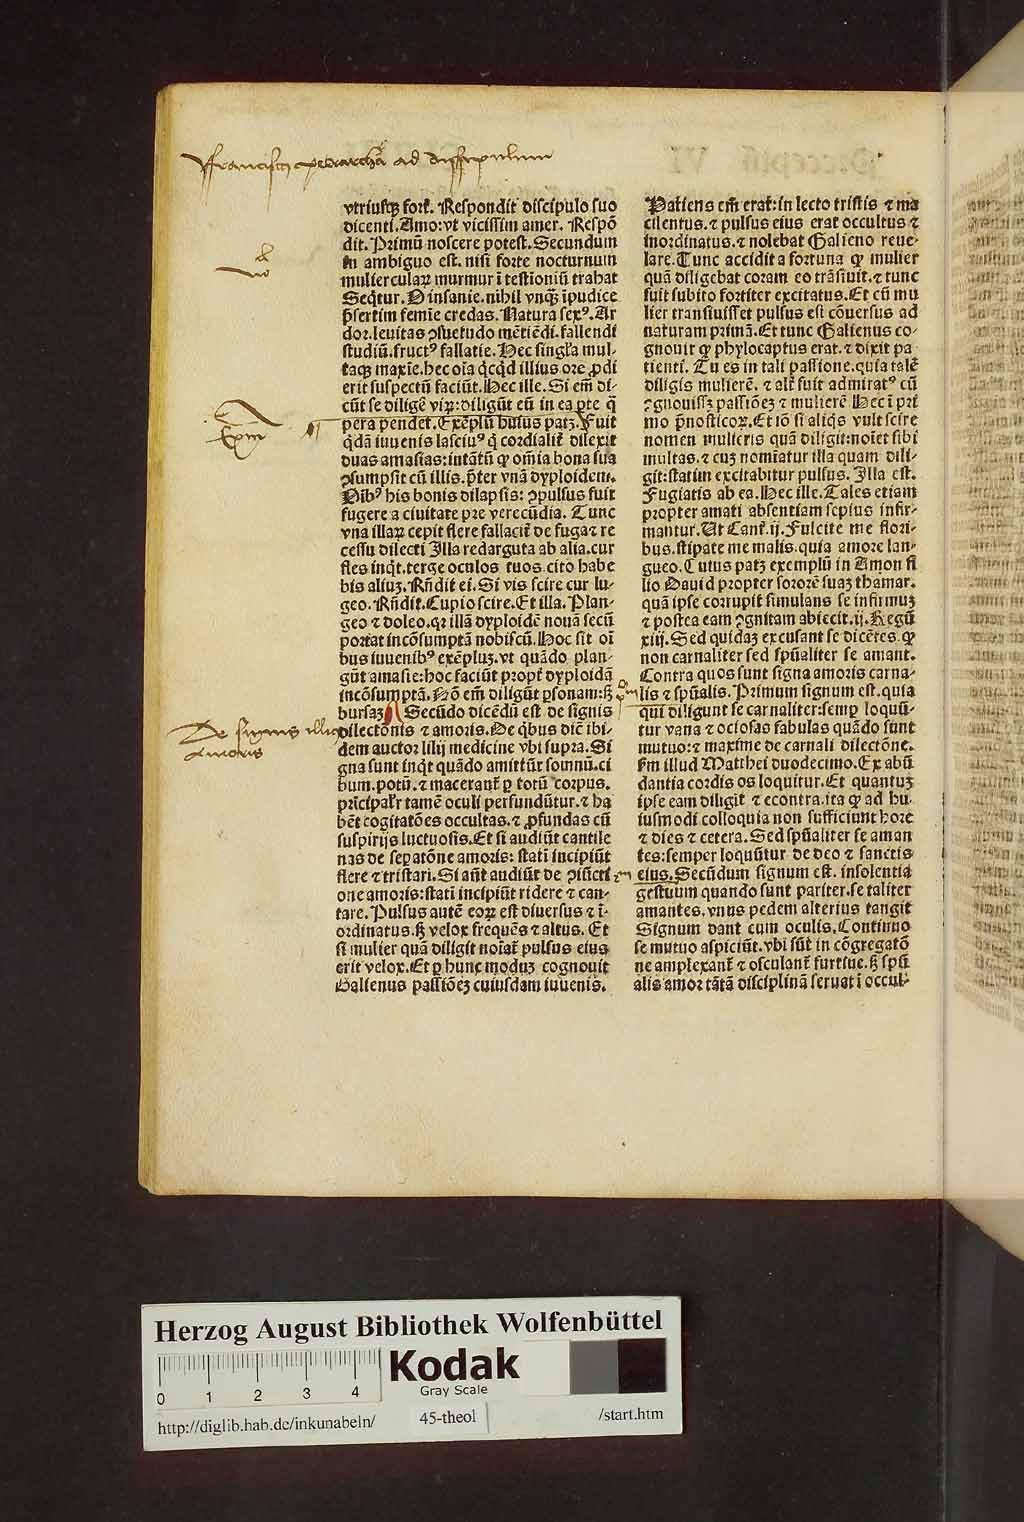 Franciscus petrarcha ad discipulum
vtriusqꝫ fort̃. Respondit discipulo suo
dicenti. Amo: vt vicissim amer. Respõ
dit. Primũ noscere potest. Secundum
in ambiguo est. nisi forte nocturnum
muliercularꝝ murmur ĩ testioniũ trahat
Seq̃tur. O insanie. nihil vnq̃ꝫ ĩpudice
p̃sertim femĩe credas. Natura sexꝰ. Ar
doꝛ. leuitas ꝯsuetudo mẽtiẽdi. fallendi
studiũ. fructꝰ fallatie. Hec singl̃a mul-
taqꝫ maxĩe. hec oĩa q̃cq̃d illius oꝛe ꝓdi
erit suspectũ faciũt. Hec ille. Si em̃ di-
cũt se diligẽ viꝝ: diligũt eũ in ea ꝑte q̃
pera pendet. Exẽplũ huius patꝫ. Fuit
q̃dã iuuenis lasciuꝰ q̃ cordialit̃ dilexit
duas amasias: intãtũ ꝙ om̃ia bona sua
ꝯsumpsit cũ illis. p̃ter vnã dyploidem.
Nibꝰ his bonis dilapsis: ꝓpulsus fuit
fugere a ciuitate pre verecũdia. Tunc
vna illaꝝ cepit flere fallacit̃ de fuga ⁊ re
cessu dilecti Illa redarguta ab alia. cur
fles inq̃t. terge oculos tuos cito habe
bis aliuꝫ. Rñdit ei. Si vis scire cur lu-
geo. Rñdit. Cupio scire. Et illa. Plan-
geo ⁊ doleo. qꝛ illã dyploidẽ nouã secũ
poꝛtat incõsumptã nobiscũ. Hoc sit oĩ
bus iuuenibꝰ exẽpluꝫ. vt quãdo plan-
gũt amasie: hoc faciũt propt̃ dyploidã
incõsumptã. Nõ em̃ diligũt ꝑsonam: sꝫ
bursaꝫ Secũdo dicẽdũ est de signis
dilectonis ⁊ amoris. De q̃bus dic̃ ibi-
dem auctor lilij medicine vbi supra. Si
gna sunt inq̃t quãdo amittũt somnũ. ci
bum. potũ. ⁊ macerant̃ ꝑ totũ corpus.
prĩcipalr̃ tamẽ oculi perfundũtur. ⁊ ha
bẽt cogitatões occultas. ⁊ ꝓfundas cũ
suspirijs luctuosis. Et si audiũt cantile
nas de sepatõne amoris: statĩ incipiũt
flere ⁊ tristari. Si aũt audiũt de ꝯiũcti
one amoris: statĩ incipiũt ridere ⁊ can-
tare. Pulsus autẽ eoꝝ est diuersus ⁊ ĩ-
ordinatus. sꝫ velox frequẽs ⁊ altus. Et
si mulier quã diligit noĩat̃ pulsus eius
erit velox. Et ꝑ hunc moduꝫ cognouit
Galienus passiõeꝫ cuiusdam iuuenis.
De signis illius
amoris
Patiens em̃ erat: in lecto tristis ⁊ ma
cilentus. ⁊ pulsus eius erat occultus ⁊
inordinatus. ⁊ nolebat Galieno reue-
lare. Tunc accidit a fortuna ꝙ mulier
quã diligebat coram eo trãsiuit. ⁊ tunc
fuit subito fortiter excitatus. Et cũ mu
lier transiuisset pulsus est cõuersus ad
naturam primã. Et tunc Galienus co-
gnouit ꝙ phylocaptus erat. ⁊ dixit pa
tienti. Tu es in tali passione. quia talẽ
diligis mulierẽ. ⁊ alt̃ fuit admiratꝰ cũ
ꝯgnouissꝫ passiõeꝫ ⁊ mulierẽ Hec ĩ pri
mo p̃nosticoꝝ. Et iõ si aliq̃s vult scire
nomen mulieris quã diligit: noĩet sibi
multas. ⁊ cuꝫ nomĩatur illa quam dili-
git: statim excitabitur pulsus. Illa est.
Fugiatis ab ea. Hec ille. Tales etiam
propter amati absentiam sepius infir-
mantur. Ut Cant̃. ij. Fulcite me flori-
bus. stipate me malis. quia amore lan-
gueo. Cutus patꝫ exemplũ in Amon fi
lio Dauid propter sororẽ suaꝫ thamar.
quã ipse corrupit simulans se infirmuꝫ
⁊ postea eam ꝯgnitam abiecit. ij. Regũ
xiij. Sed quidaꝫ excusant se dicẽtes. ꝙ
non carnaliter sed spũaliter se amant.
Contra quos sunt signa amoris carna-
lis ⁊ spũalis. Primum signum est. quia
qui diligunt se carnaliter: semꝑ loquũ-
tur vana ⁊ ociosas fabulas quãdo sunt
mutuo: ⁊ maxime de carnali dilectõne.
ẜm illud Matthei duodecimo. Ex abũ
dantia cordis os loquitur. Et quantuꝫ
ipse eam diligit ⁊ econtra. ita ꝙ ad hu-
iusmodi colloquia non sufficiunt hore
⁊ dies ⁊ cetera. Sed spũaliter se aman
tes: semper loquũtur de deo ⁊ sanctis
eius. Secũdum signum est. insolentia
gestuum quando sunt pariter. se taliter
amantes. vnus pedem alterius tangit
Signum dant cum oculis. Continuo
se mutuo aspiciũt. vbi sũt in cõgregatõ
ne amplexant̃ ⁊ osculant̃ furtiue. sꝫ spũ
alis amoꝛ tãtã disciplinã seruat ĩ occul-
Herzog August Bibliothek Wolfenbüttel
0 1 2 3 4
Kodak
Gray Scale
http://diglib.hab.de/inkunabeln/ 45-theol /start.htm